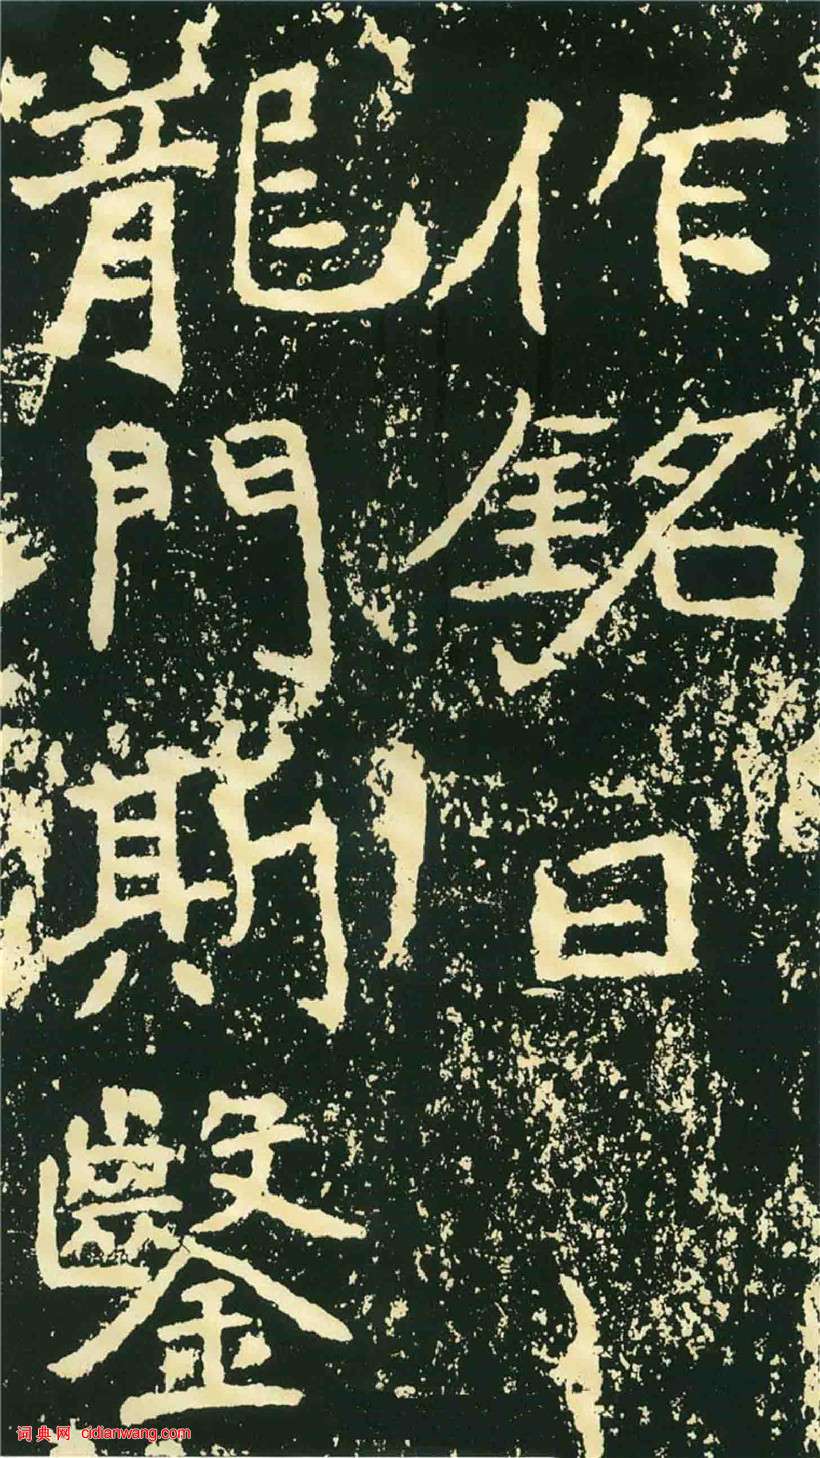 作銘曰
龍門斯鑿
词典网 cidianwang.com